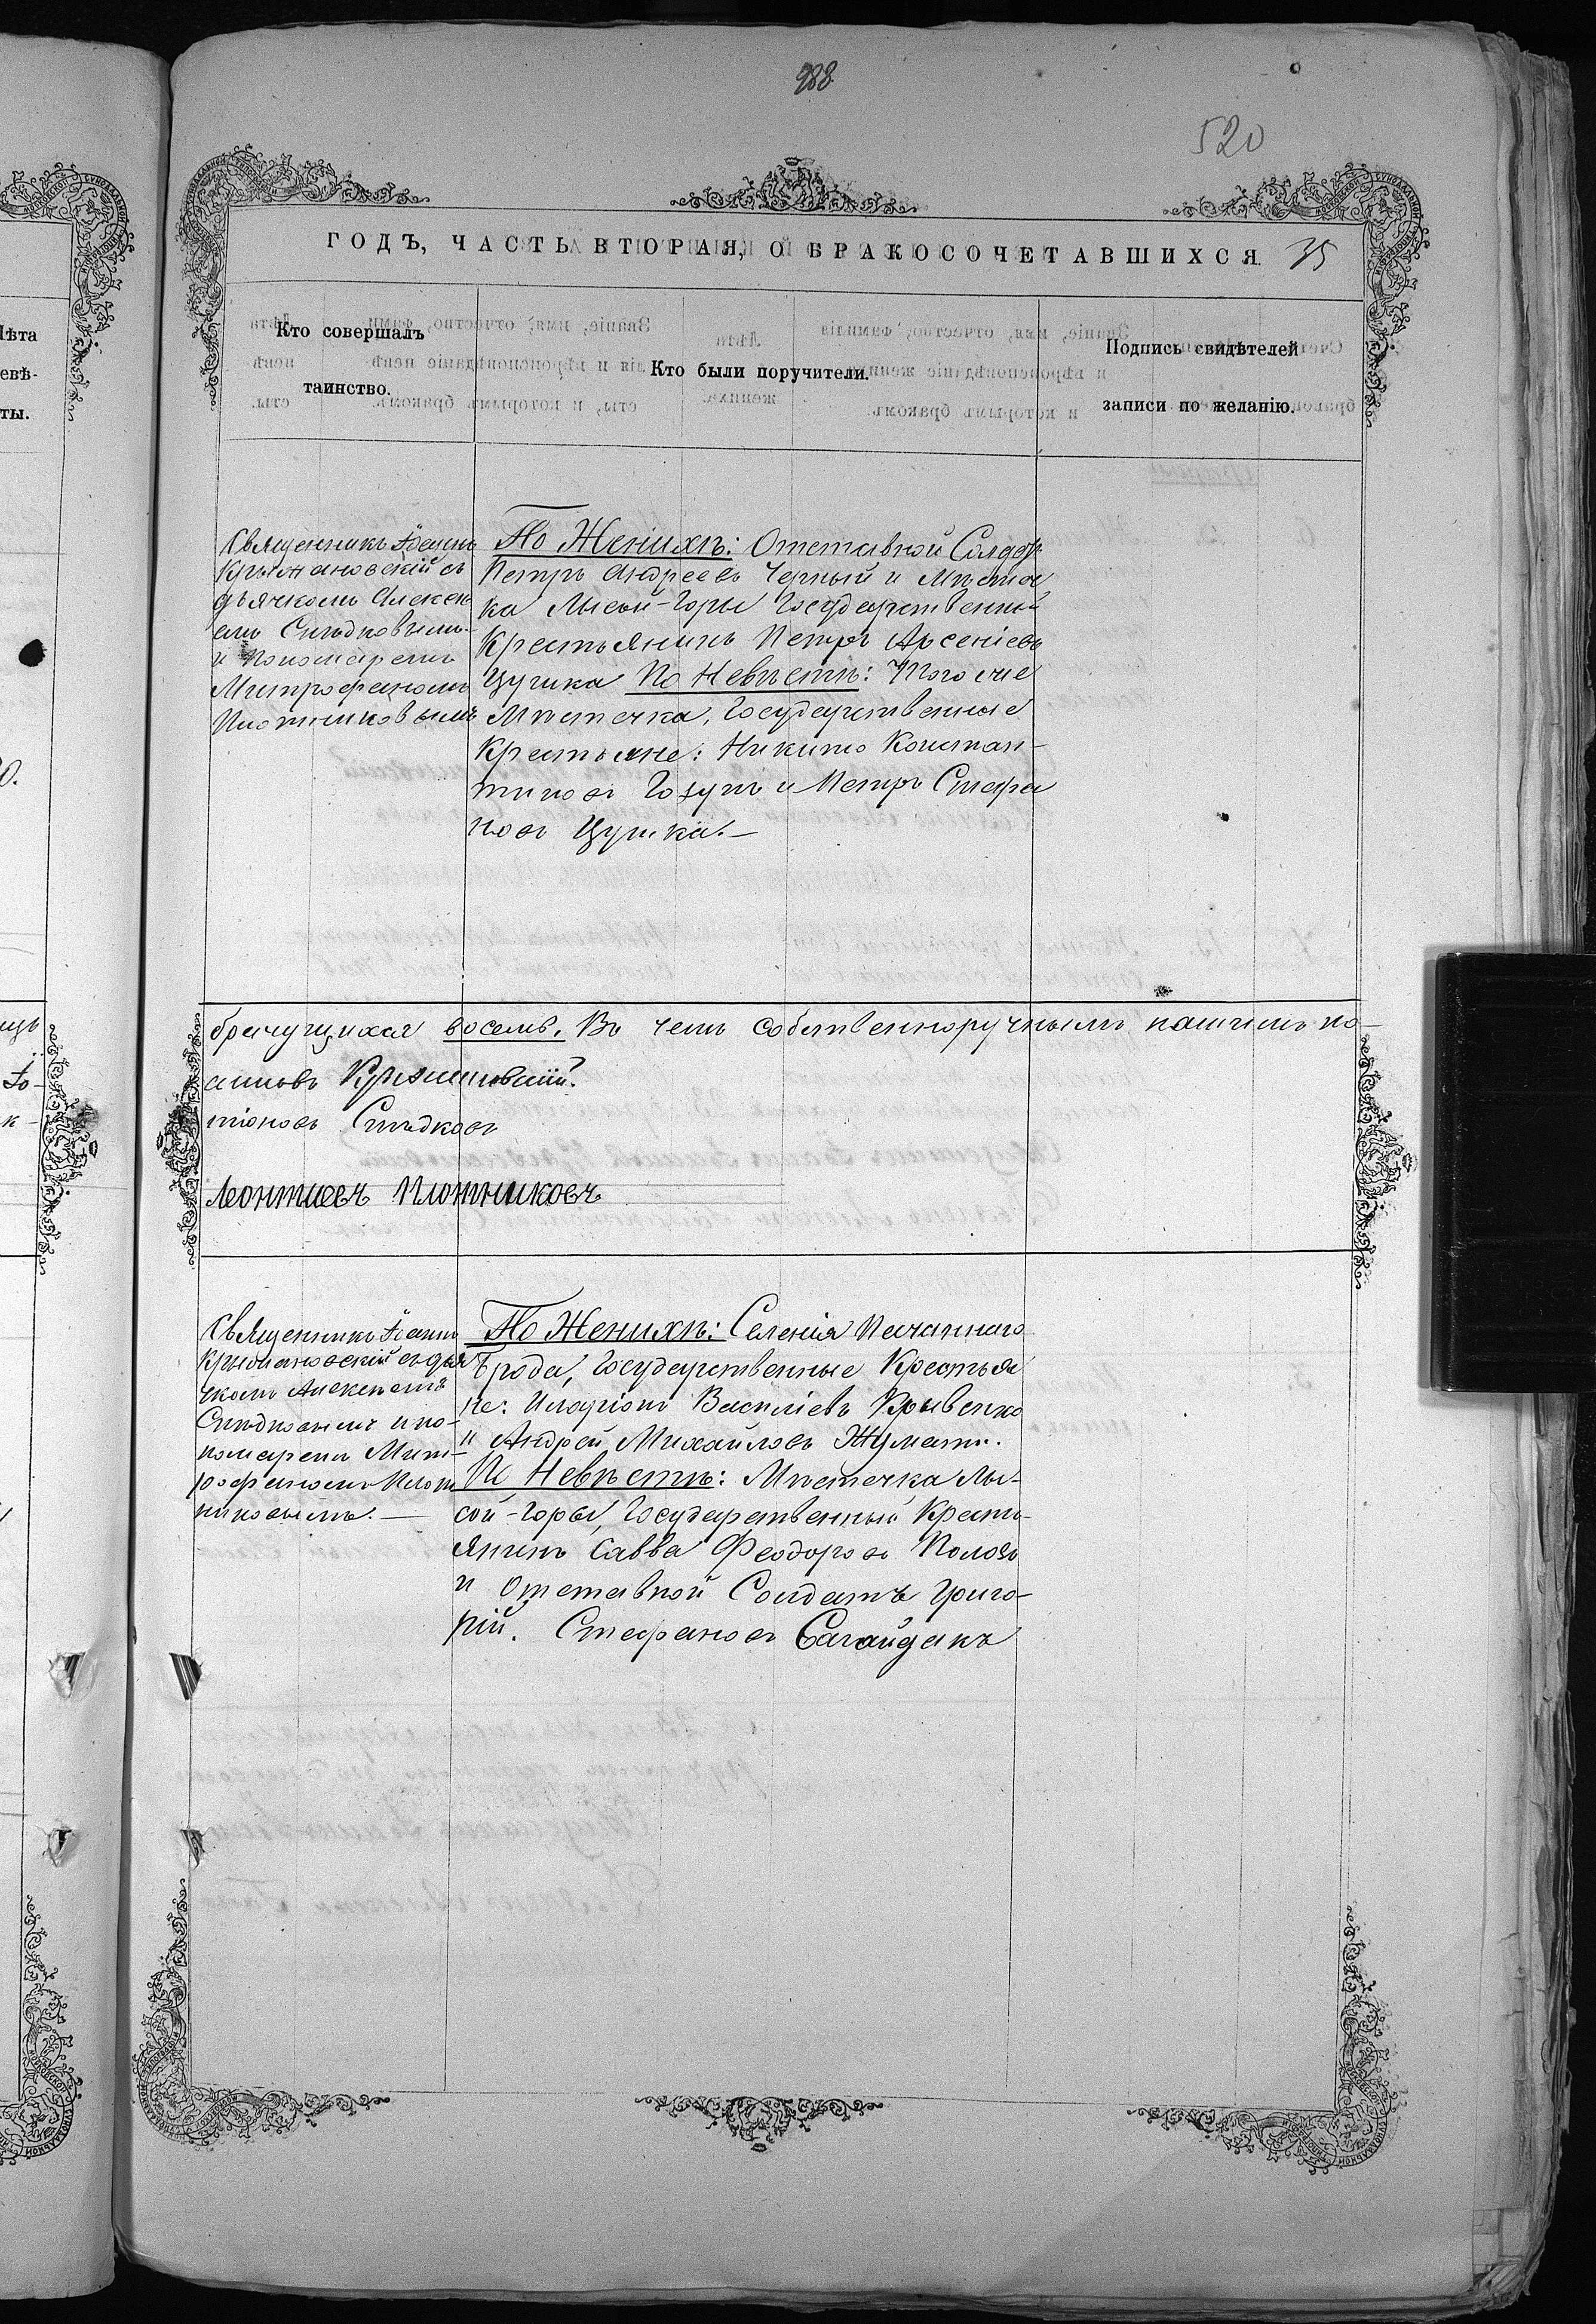 988
520
ГОДЪ, ЧАСТЬ ВТОРАЯ, О БРАКОСОЧЕТАВШИХСЯ. 35
Кто совершалъ
таинство.
Кто были поручители.
Подпись свидѣтелей
записи по желанію.
Лѣта
евѣ-
ты.
Священникъ Іоаннъ
Крыжановскій съ
дьячкомъ Алексѣ
емъ Слѣдковымъ
и пономаремъ
Митрофаномъ
Плотниковымъ
По Женихѣ: Отставной Солдатъ
Петръ Андреевъ Черный и Мѣстеч
ка Лысой-Горы Государственный
Крестьянинъ Петръ Арсеніевъ
Цупка По Невѣстѣ: Того же
Мѣстечка, Государственные
Крестьяне: Никита Констан-
тиновъ Гозунъ и Петръ Стефа
новъ Цупка.—
брачущихся восемь. Въ чемъ собственноручнымъ нашимъ по-
анновъ Крыжановскій.
тіоновъ Слѣдковъ
Леонтиевъ Плотниковъ
Священникъ Іоаннъ
Крыжановскій съ дья
чкомъ Алексѣемъ
Слѣдковымъ и по-
номаремъ Мит-
рофаномъ Плот
никовымъ.—
По Женихѣ: Селенія Песчаннаго
Брода, Государственные Крестья
не: Иларіонъ Василіевъ Крывенко
и Андрей Михайловъ
По Невѣстѣ: Мѣстечка Лы-
сой-Горы, Государственный Кресть-
янинъ Савва Феодоровъ
и Отставной Солдатъ Григо-
рій. Стефановъ Сагайдакъ